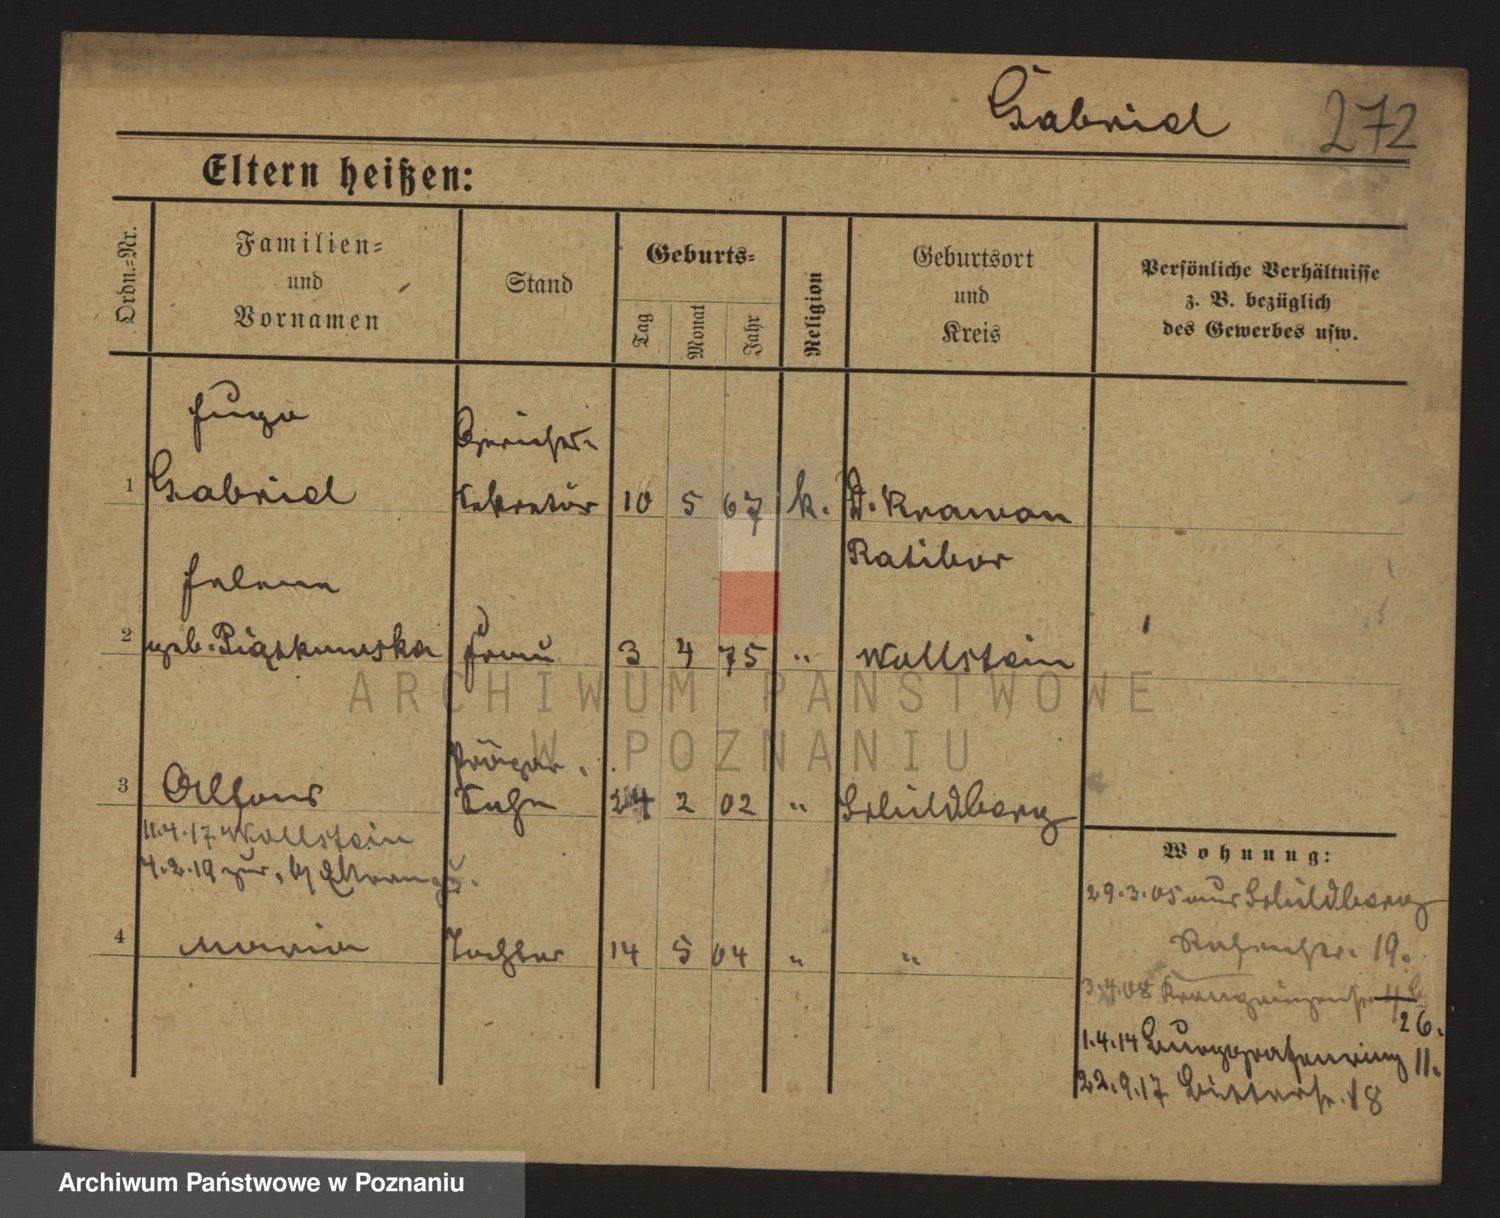 Gabriel 272
Eltern heißen:
Ordn.=Nr.
Familien=
und
Vornamen
Stand
Geburts=
Tag
Monat
Jahr
Religion
Geburtsort
und
Kreis
Persönliche Verhältnisse
z. B. bezüglich
des Gewerbes usw.
Hugo
Gerichts-
1 Gabriel Sekretär 10 5 67 k. D. Krawarn
Ratibor
Helene
2 geb. Piątkowska Frau 3 4 75 " Wollstein
3 Alfons Sohn 24 2 02 " Schildberg
11.4.17 Wollstein
4.2.19 zur. Eltern
4 Maria Tochter 14 5 04 " "
Wohnung:
29.3.05 aus Schildberg
19.
3.4.08 Kronprinzenstr
26.
1.4.14 Burggrafenring 11.
22.9.17 Bitterstr. 18
ARCHIWUM PAŃSTWOWE
W POZNANIU
Archiwum Państwowe w Poznaniu